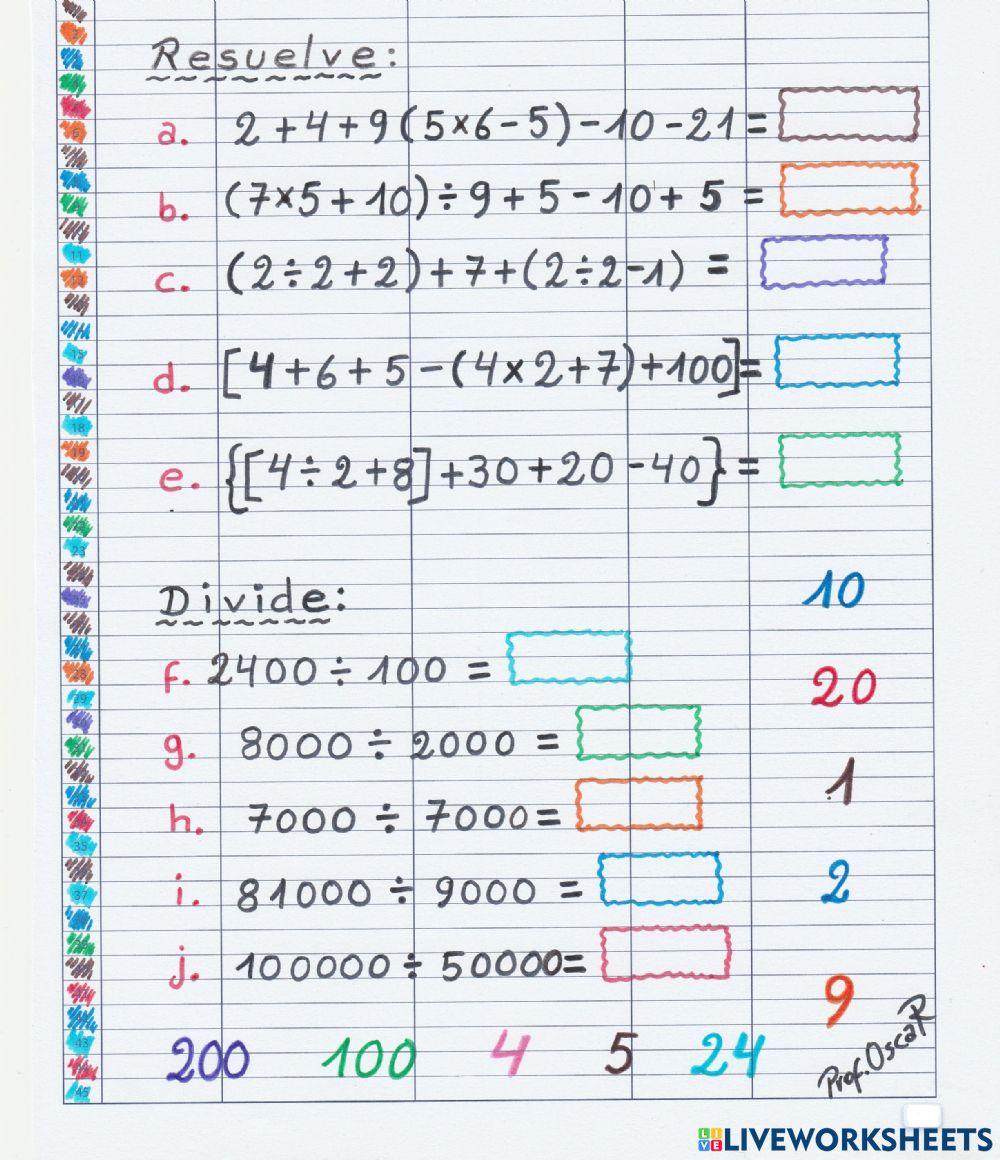 Resuelve:
a. 2 + 4 + 9 (5×6 - 5) - 10 - 21 =
b. (7×5 + 10) ÷ 9 + 5 - 10 + 5 =
c. (2 ÷ 2 + 2) + 7 + (2 ÷ 2 - 1) =
d. [4 + 6 + 5 - (4 × 2 + 7) + 100] =
e. {[4 ÷ 2 + 8] + 30 + 20 - 40} =
Divide:
10
f. 2400 ÷ 100 =
20
g. 8000 ÷ 2000 =
1
h. 7000 ÷ 7000 =
2
i. 81000 ÷ 9000 =
j. 100000 ÷ 50000 =
9
200 100 4 5 24
Prof. Oscar R
LIVEWORKSHEETS